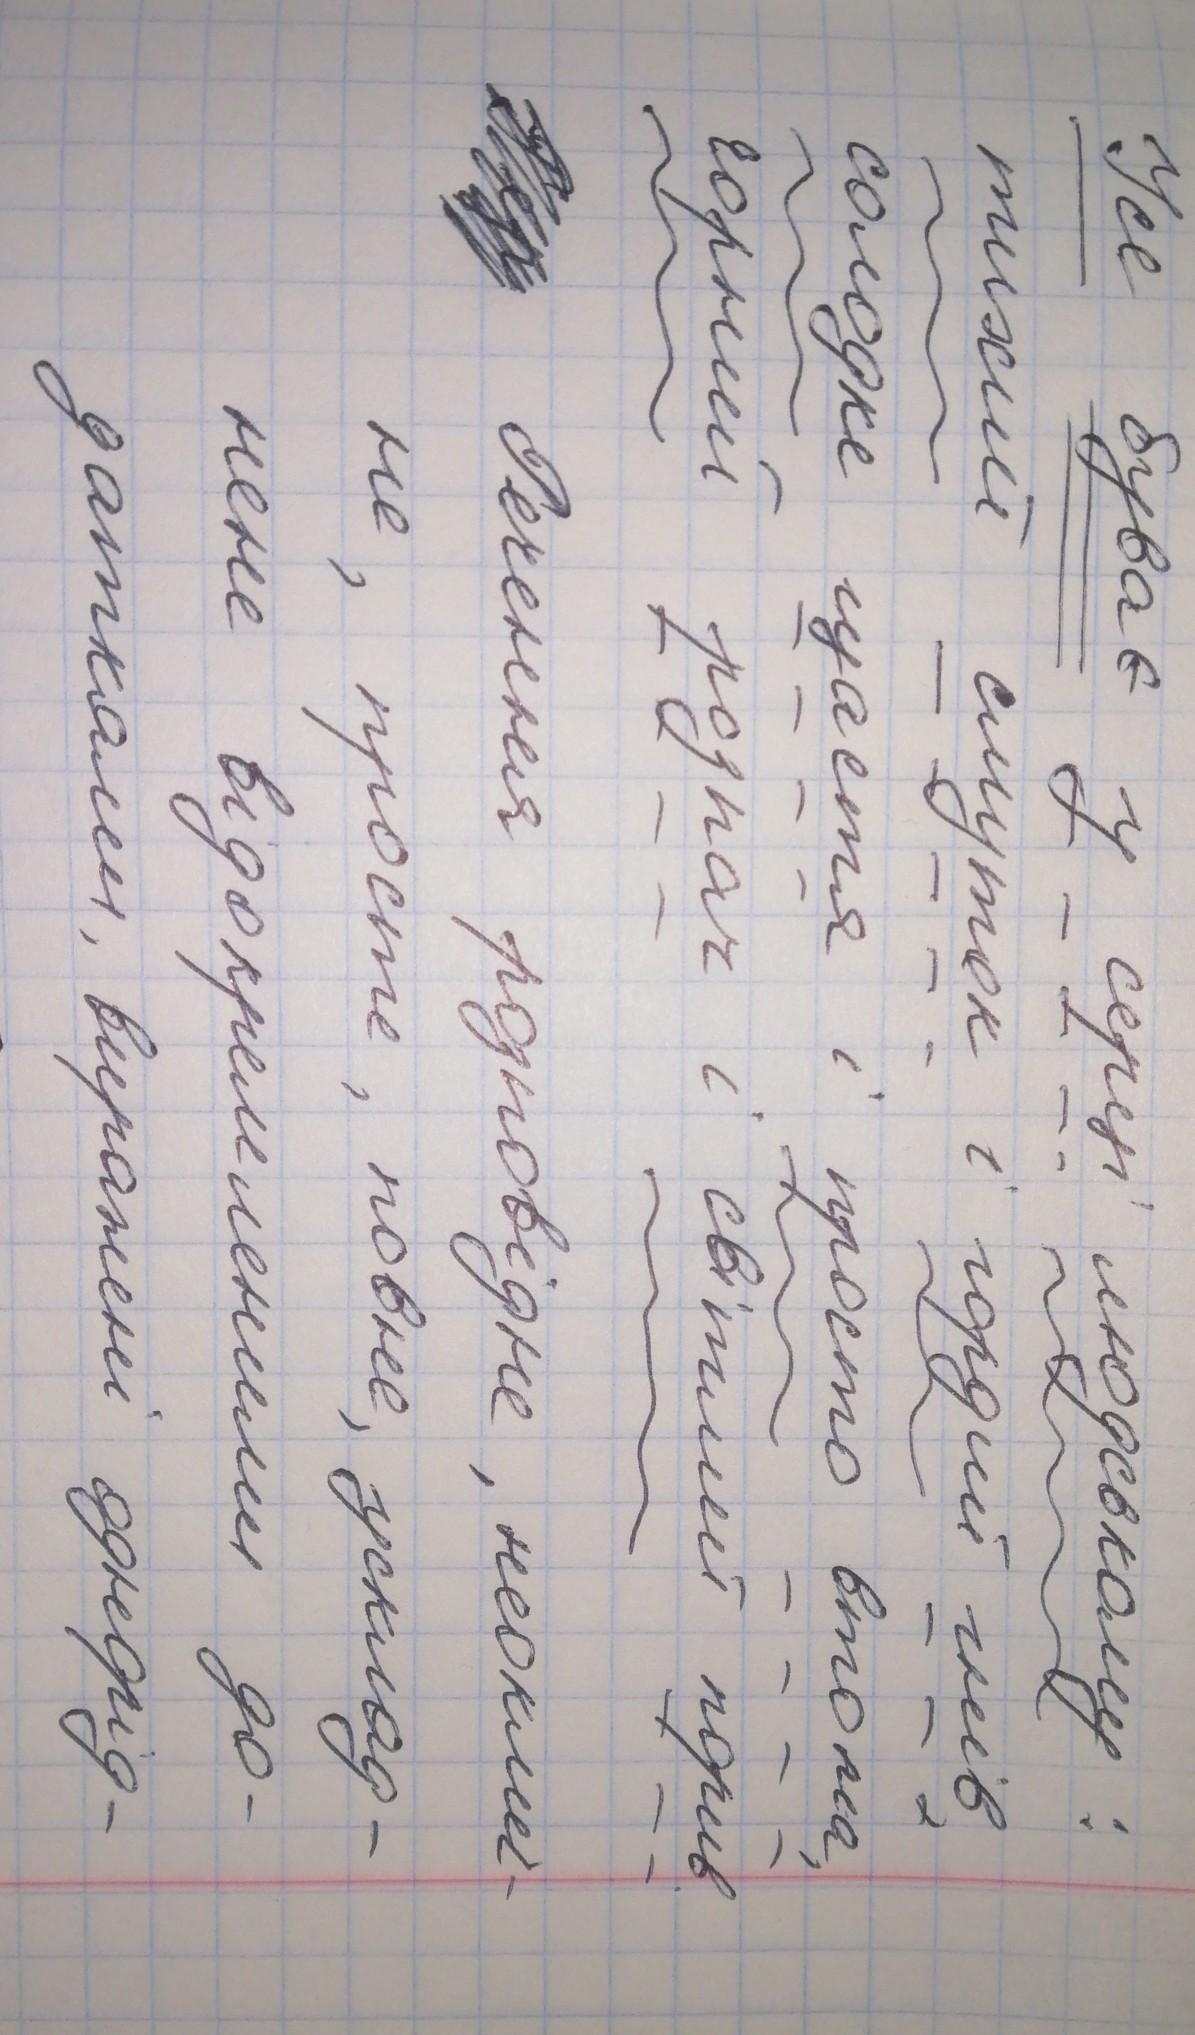 Усе буває у серці людському:
тихий смуток і гордий гнів,
солодке щастя і просто втома,
чорний розпач і світлий порив
Речення розповідне, неокли-
чне, просте, повне, усклад-
нене відокремленими до-
датками, виражені однорід-